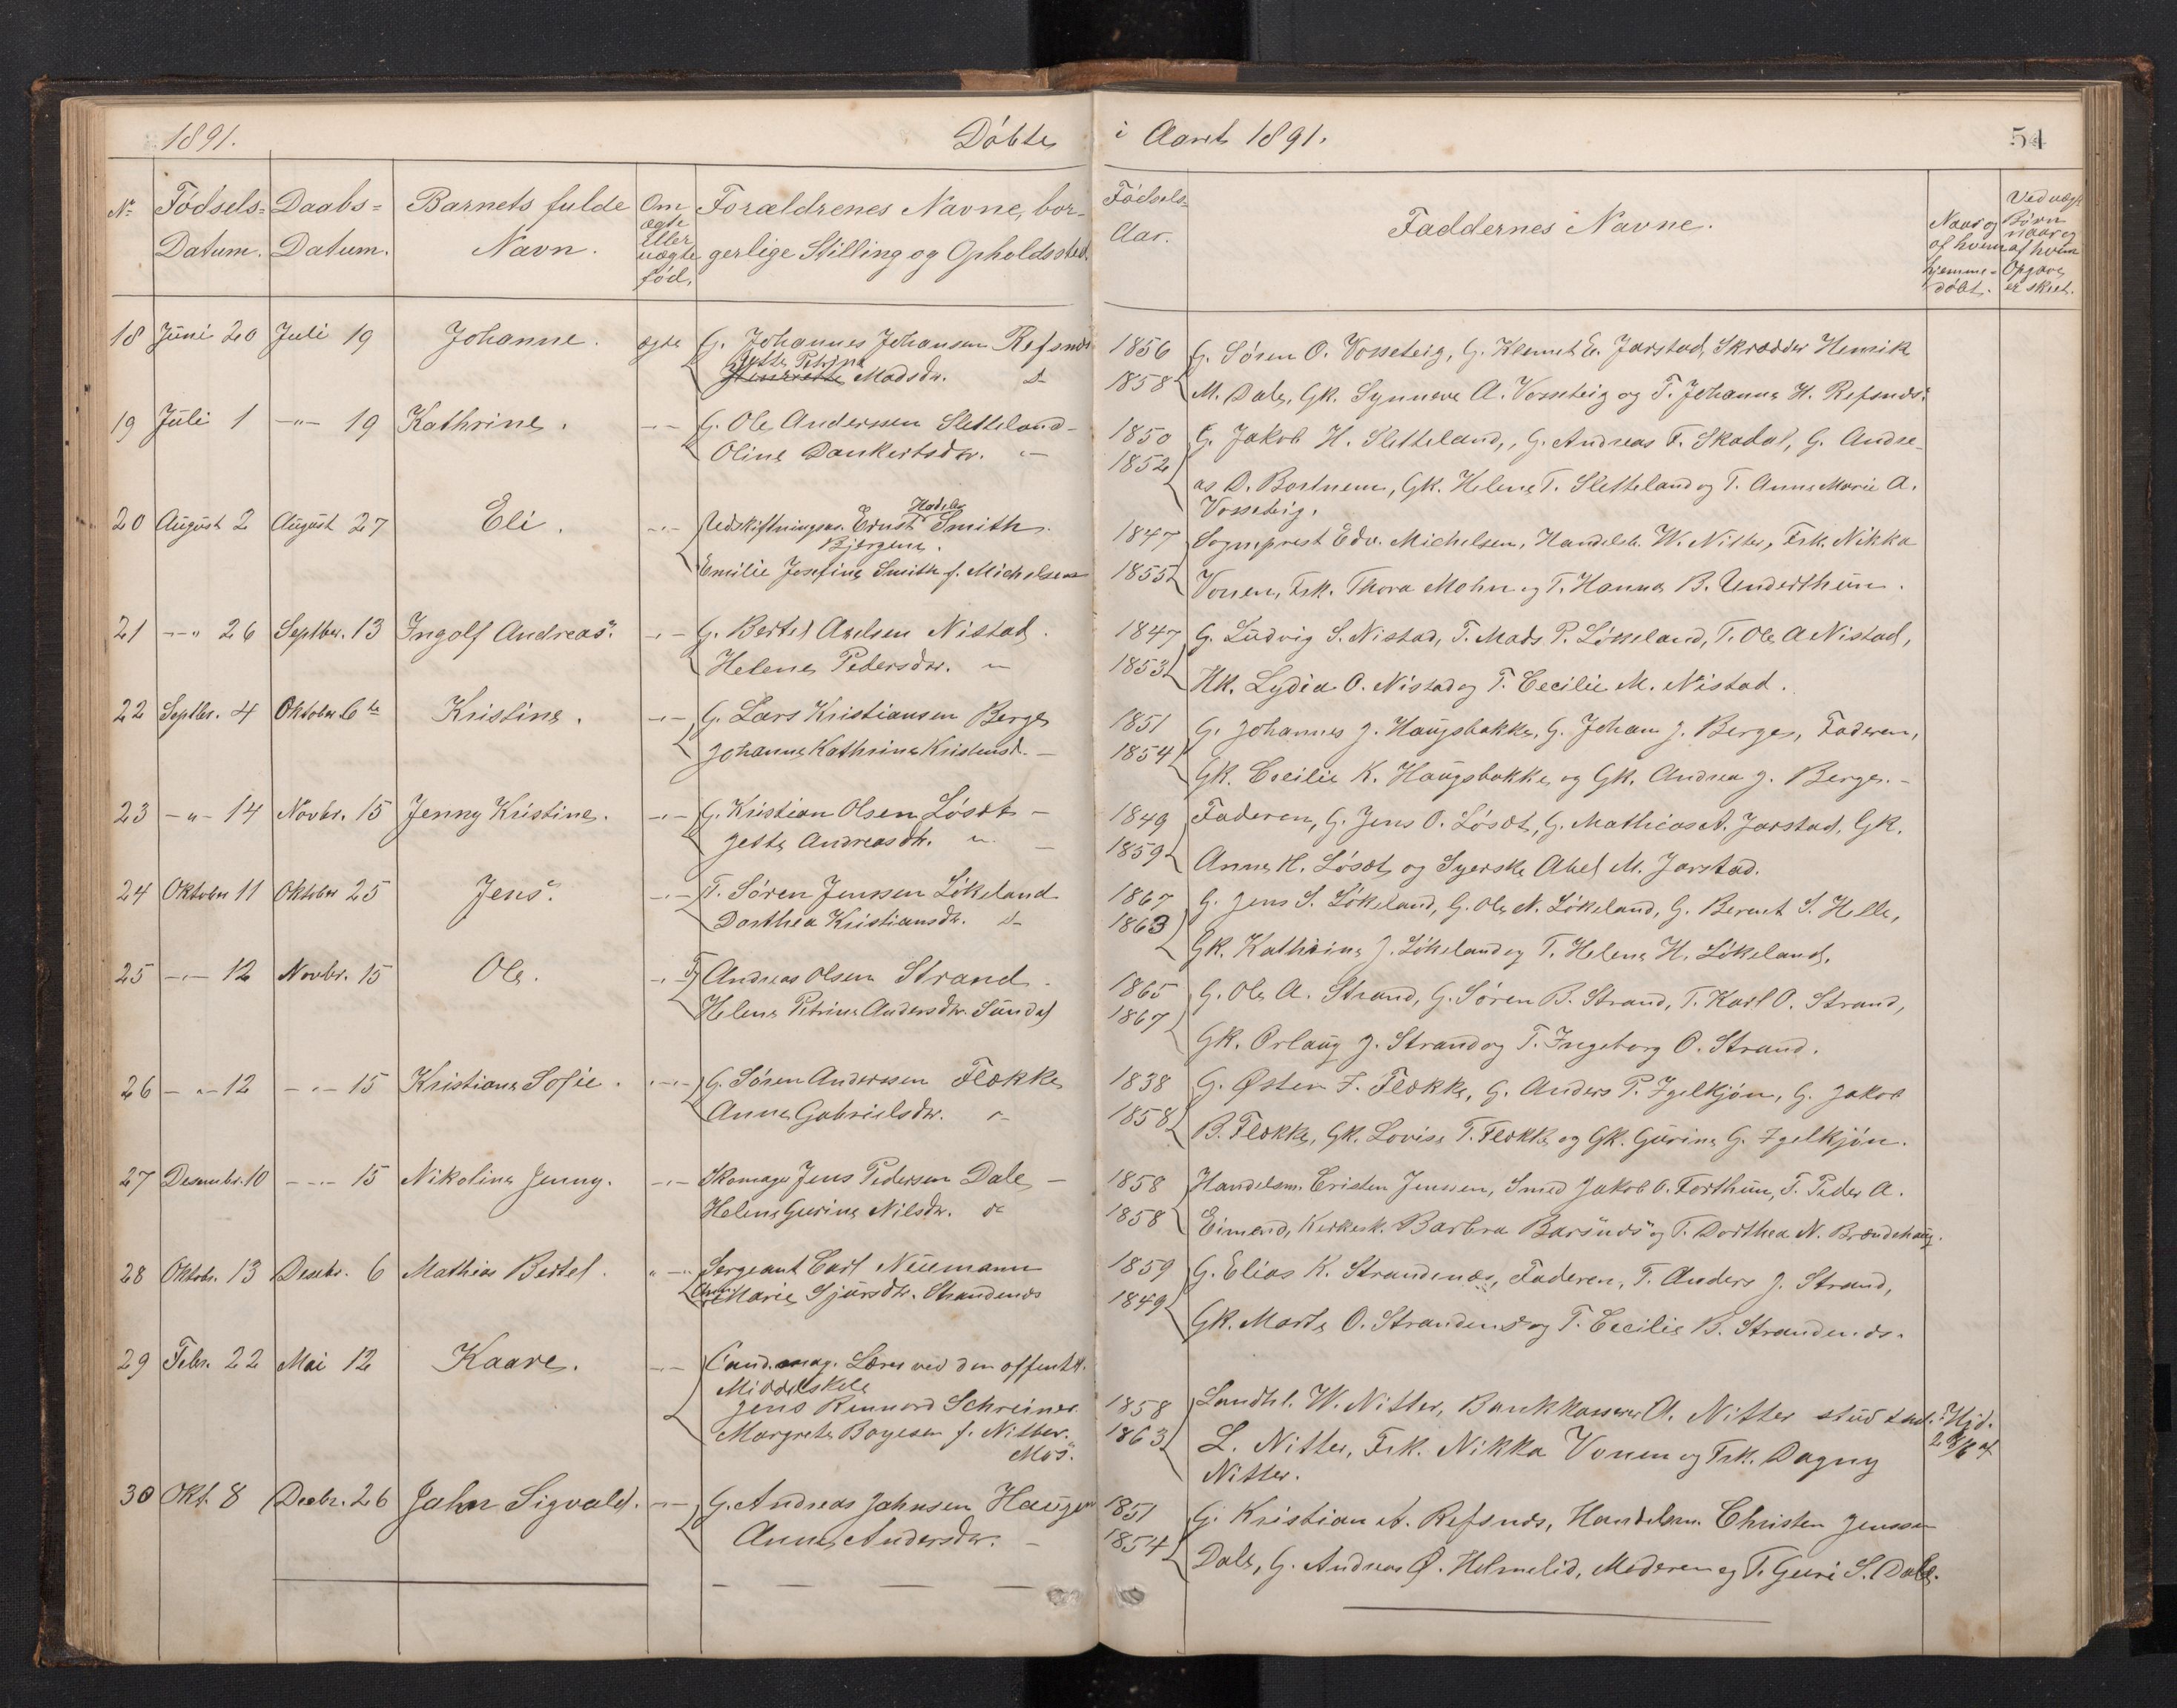 1891.
Døbte
i Aaret 1891.
54
No
Fødsels-
Datum.
Daabs-
Datum.
Barnets fulde
Navn.
Om
ægte
eller
uægte
fød.
Forældrenes Navne, bor-
gerlige Stilling og Opholdssted.
Fødsels-
Aar.
Faddernes Navne.
Naar og
af hvem
hjemme-
døbt.
Ved uægt.
Børn
naar og
af hvem
Opgave
er skeet.
18 Juni 20 Juli 19 Johanne. ægte G. Johannes Johansen Refsnæs 1856 G. Søren O. Vosseteig, G. Klemet E. Jarstad, Skrædder Henrik
Jette Petrine
Henriette Madsdr. d- 1858 M. Dale, Gk. Synneve A. Vosseteig og T. Johanne H. Refsnæs.
19 Juli 1 -"- 19 Kathrine. -"- G. Ole Anderssen Sletteland - 1850 G. Jakob H. Sletteland, G. Andreas F. Skadal, G. Andre-
Oline Dankertsdr. "- 1852 as D. Bortnem, Gk. Helene T. Sletteland og T. Anne Marie A.
Vosseteig.
20 August 2 August 27 Eli. -"- Udskiftningsas. Ernst Smith. 1847 Sogneprest Edv. Michelsen, Handelsb. W. Nitter, Frk. Nikka
Bjergene.
Emilie Josefine Smith f. Michelsen 1855 Vonen, Frk. Thora Mohn og T. Hanna B. Underthun.
21 -"- 26 Septber. 13 Ingolf Andreas. -"- G. Bertel Axelsen Nistad. 1847 G. Ludvig S. Nistad, T. Mads P. Løsseland, T. Ole A Nistad,
Helene Pedersdr. " 1853 Hk. Lydia O. Nistad og T. Cecilie M. Nistad.
22 Septbr. 4 Oktober 6te Kristine. -"- G. Lars Kristiansen Berge 1851 G. Johannes J. Haugsbakke, G. Johan J. Berge, Faderen,
Johanne Kathrine Kristensd. - 1854 Gk. Cecilie K. Haugsbakke og Gk. Andrea J. Berge. -
23 -"- 14 Novbr. 15 Jenny Kristine. -"- G. Kristian Olsen Løsæt - 1849 Faderen, G. Jens O. Løsæt, G. Mathias A. Jarstad, Gk.
Jette Andreasdtr. " - 1859 Anne H. Løsæt og Syerske Abel M. Jarstad.
24 Oktober 11 Oktober 25 Jens. -"- T. Søren Jenssen Løkeland 1867 G. Jens S. Løkeland, G. Ole N. Løkeland, G. Bernt S. Helle,
Dorthea Kristiansdr. d- 1863 Gk. Kathrine J. Løkeland og T. Helene H. Løkeland.
25 -"- 12 Novbr. 15 Ole. -"- F Andreas Olsen Strand. 1865 G. Ole A. Strand, G. Søren B. Strand, T. Karl O. Strand,
Helene Petrine Andersdtr. Sundal 1867 Gk. Orlaug J. Strand og T. Ingeborg O. Strand.
26 -"- 12 -"- 15 Kristiane Sofie. -"- G. Søren Anderssen Flokke 1838 G. Østen J. Flokke, G. Anders P. Igelkjøn, G. Jakob
Anne Gabrielsdtr. "- 1858 B. Flokke, Gk. Lovise T. Flokke og Gk. Gurine G. Igelkjøn.
27 Desembr. 10 -"- 15 Nikoline Jenny. -"- Skomager Jens Pedersen Dale - 1858 Handelsm. Cristen Jenssen, Smed Jakob O. Forthun, T. Peder A.
Helene Gurine Nilsdr. d- 1858 Eimend, Kirkesk. Barbra Barsnæs og T. Dorthea N. Brændehaug.
28 Oktobr. 13 Desbr. 6 Mathias Bertel. "-" Sergeant Carl Neumann 1859 G. Elias K. Strandenæs, Faderen, T. Anders J. Strand,
Ane Marie Sjursdtr. Strandenæs 1849 Gk. Marte O. Strandenæs og T. Cecilie B. Strandenæs.
29 Febr. 22 Mai 12 Kaare. -"- Cand. mag. Lærer ved den offentl.
Middelskole
Jens Schreiner 1858 Landhl. W. Nitter, Bankkasserer A. Nitter stud Hjd.
Margrete Boyesen f. Nitter. 1863 L. Nitter, Frk. Nikka Vonen og Frk. Dagny
Mos. Nitter.
30 Okt. 8 Decbr. 26 Jahn Sigvald. -"- G. Andreas Jahnsen Haugen 1851 G. Kristian A. Refsnæs, Handelsm. Christen Jenssen
Anne Andersdr. - 1854 Dale, G. Andreas Ø. Helmelid, Moderen og T. Guri S. Dale.